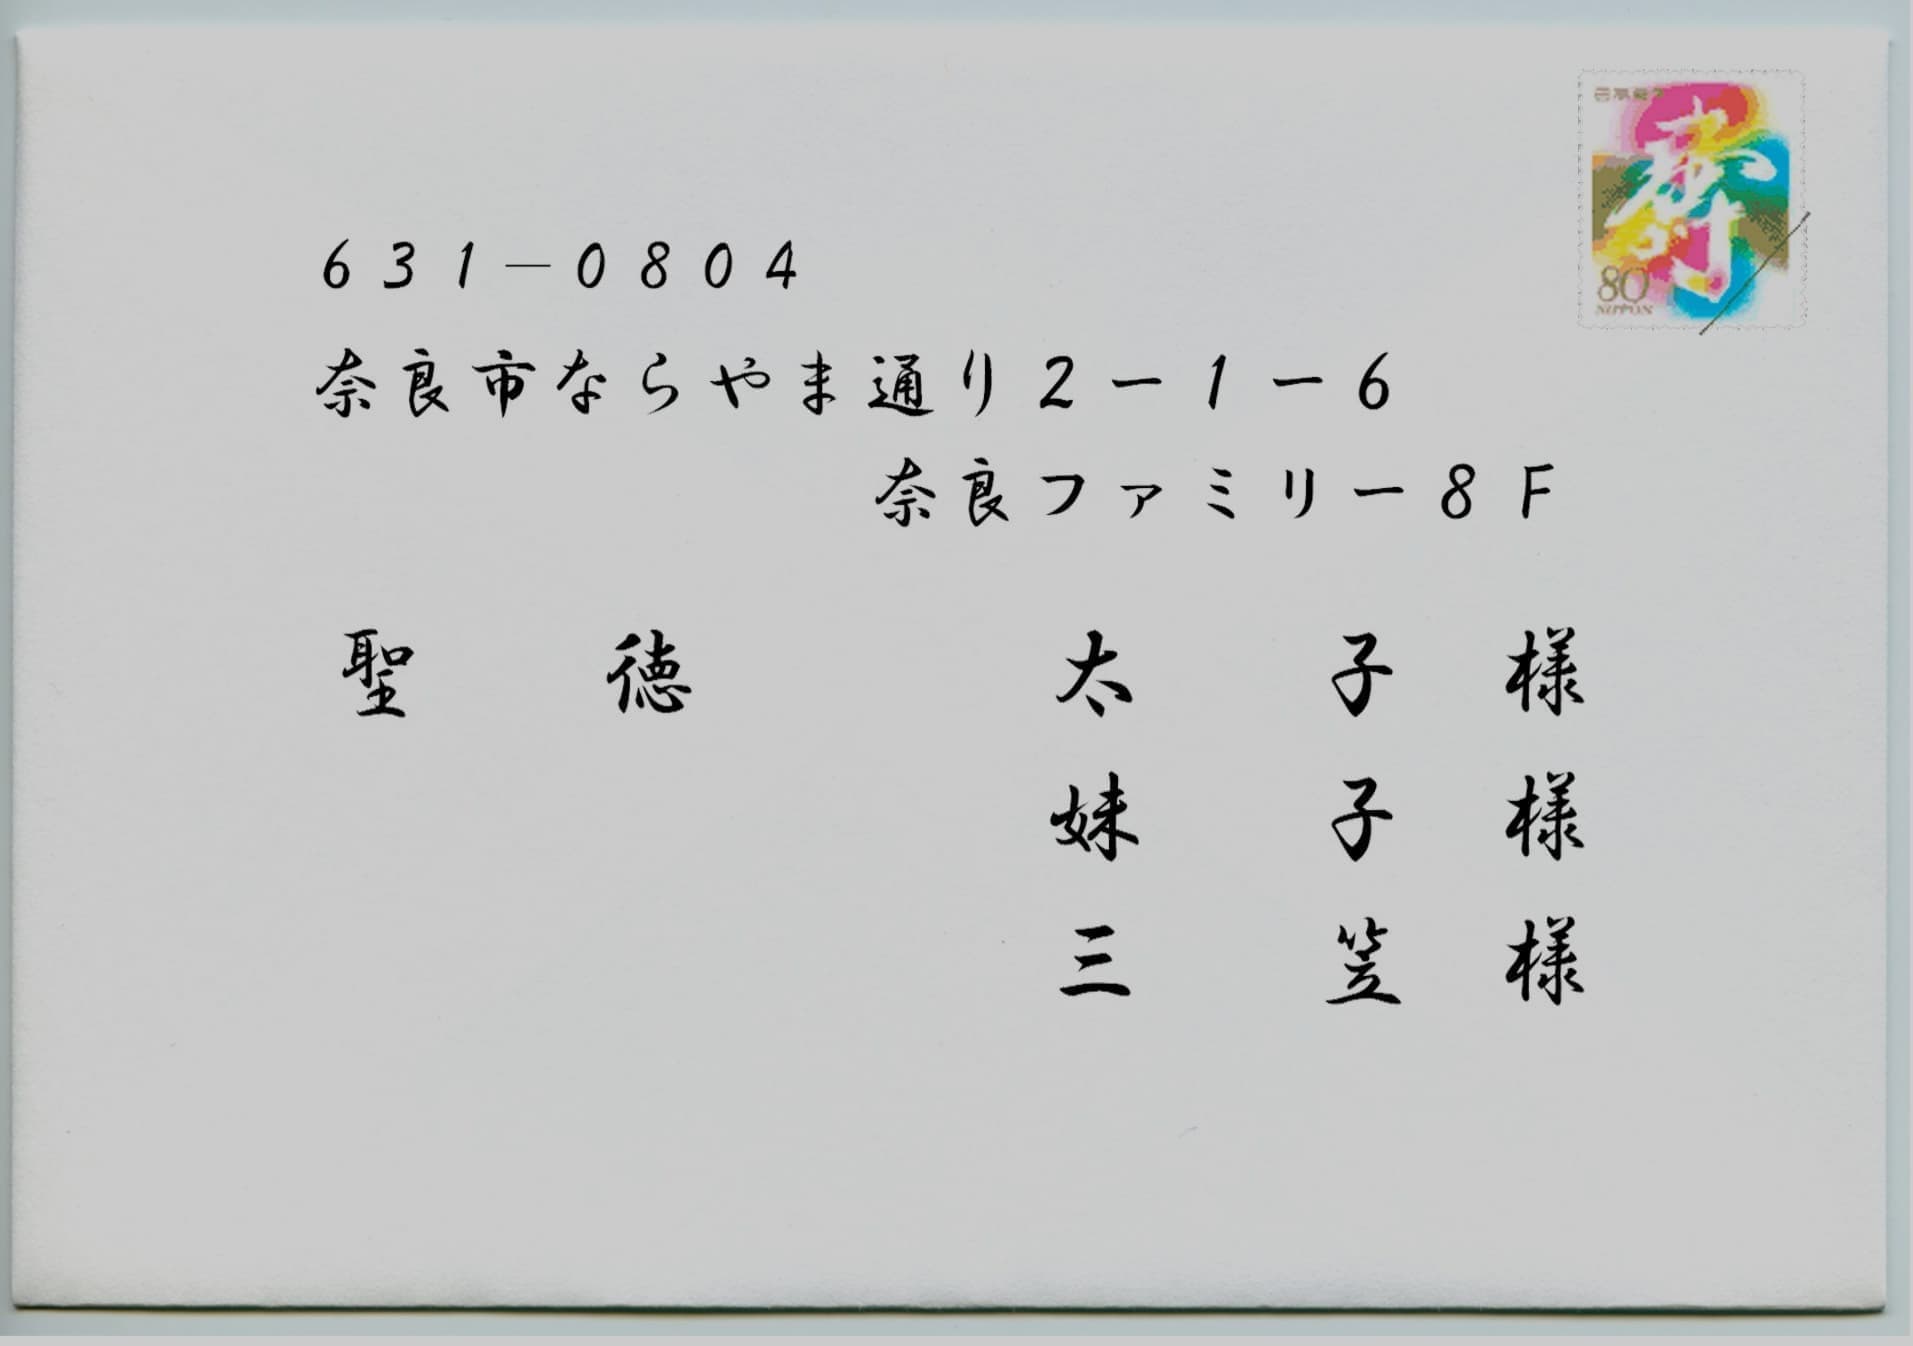 日本郵便
寿
80
NIPPON
631-0804
奈良市ならやま通り2ー1ー6
奈良ファミリー8F
聖徳 太子様
妹子様
三笠様